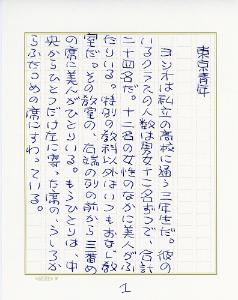 東京青年
ヨシオは私立の高校に通う三年生だ。彼の
いるクラスの人数は男女十二名ずつで、合計
二十四名だ。十二名の女性のなかに美人がふ
たりいる。特別の教科以外はいつもおなじ教
室だ。その教室の、右端の列の前から三番め
の席に美人がひとりいる。もうひとりは、中
央からひとつだけ左に寄った席の、うしろか
らふたつめの席にすわっている。
1